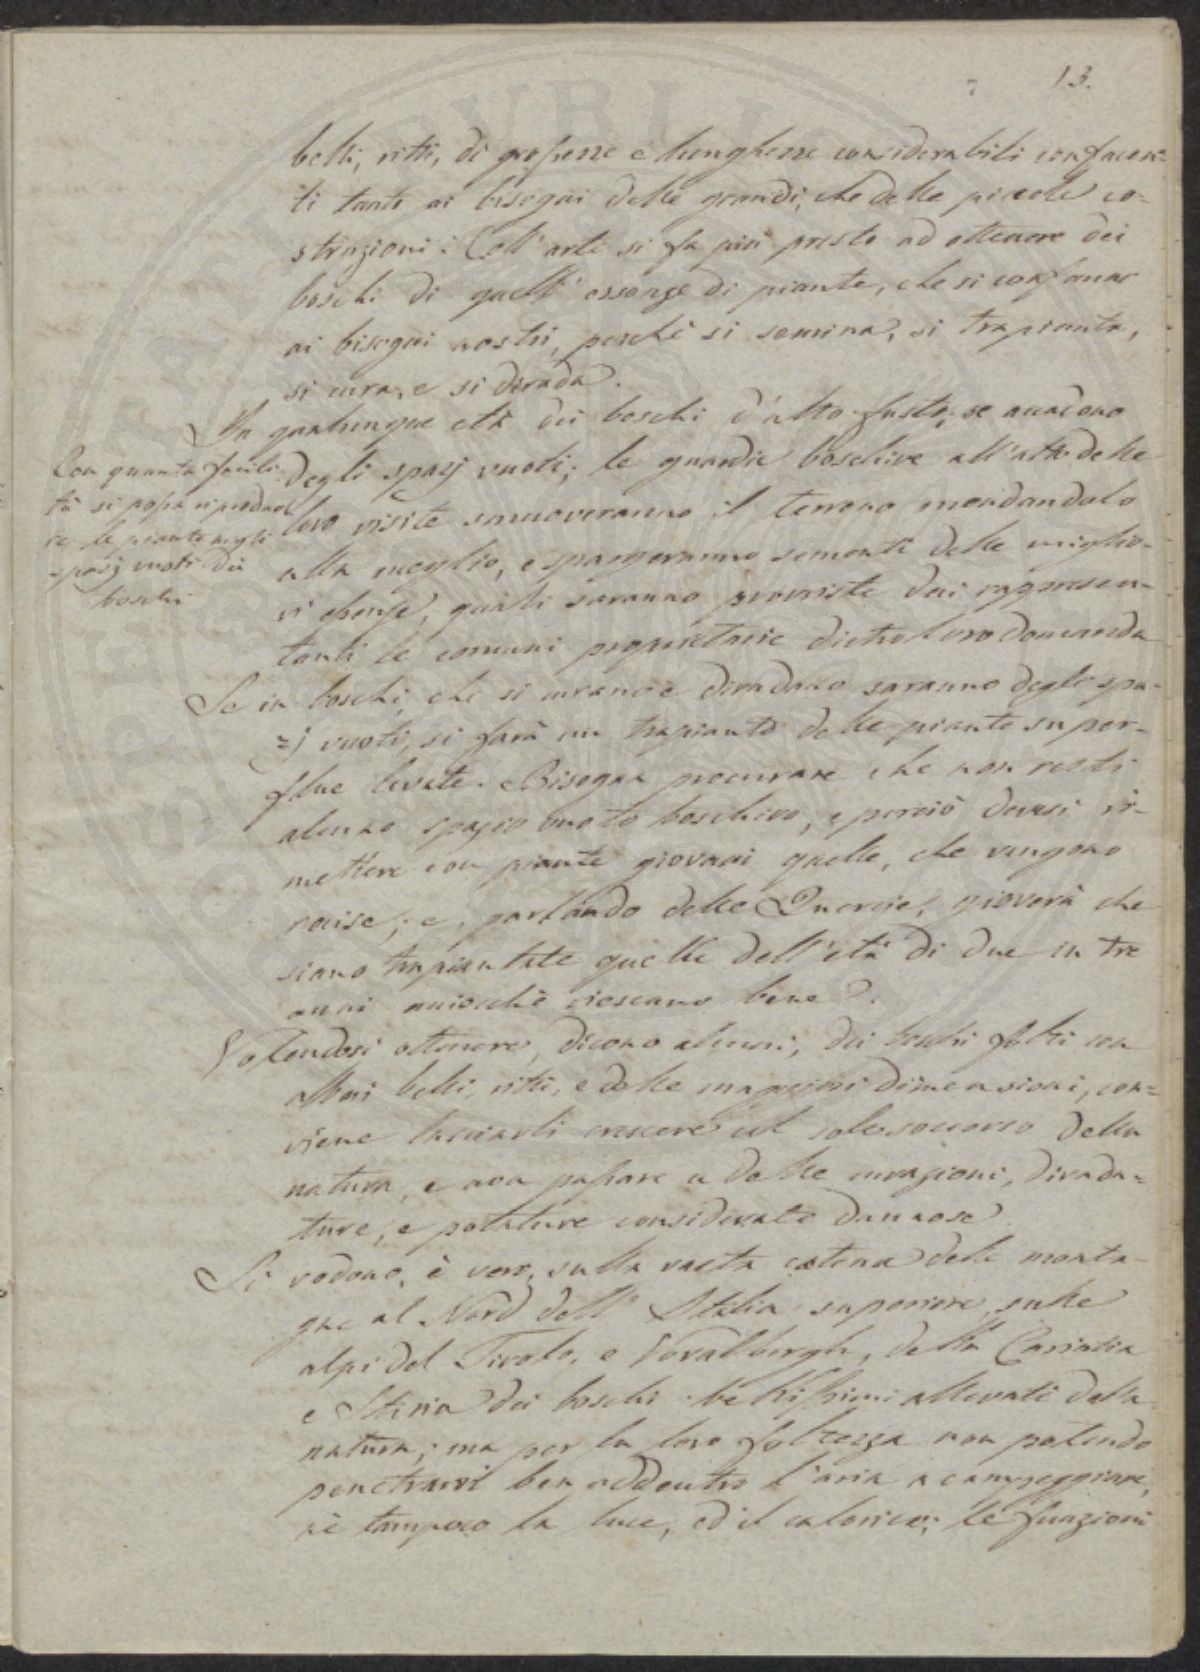 13.
belli, ritti, di grossezze e lunghezze considerabili confacen=
ti tanto ai bisogni delle grandi, che delle piccole co-
struzioni: Coll'arte si fa più presto ad ottenere dei
boschi di quell'essenze di piante, che si confanno
ai bisogni nostri, perchè si semina, si trapianta,
si cura, e si dirada.
In qualunque età dei boschi d'alto fusto, se accadono
degli spazj vuoti, le guardie boschive all'atto delle
loro visite smuoveranno il terreno mondandolo
alla meglio, e spargeranno sementi delle miglio-
ri essenze, quali saranno provviste dai rappresen-
tanti le comuni proprietarie dietro loro domanda
Con quanta facili-
tà si possa riprodur
re le piante negli
spazj vuoti dei
boschi
Se in boschi, che si curano e diradano saranno degli spa-
zj vuoti, si farà un trapianto delle piante super-
flue levate. Bisogna procurare che non resti
alcuno spazio vuoto boschivo, e perciò devesi ri-
mettere con piante giovani quelle, che vengono
recise; e, parlando delle Quercie, gioverà che
siano trapiantate quelle dell'età di due in tre
anni acciocchè riescano bene.
Volendosi ottenere, dicono alcuni, dei boschi folti con
alberi belli, ritti, e delle maggiori dimensioni, con=
viene lasciarli crescere col solo soccorso della
natura, e non passare a delle curazioni, dirada=
ture, e potature considerate dannose.
Si vedono, è vero, sulla vasta catena delle monta-
gne al Nord dell'Italia superiore, sulle
alpi del Tirolo, e Voralbergh, della Carintia
e Stiria dei boschi bellissimi allevati dalla
natura; ma per la loro foltezza non potendo
penetrarvi ben addentro l'aria a campeggiare,
nè tampoco la luce, ed il calorico; le funzioni